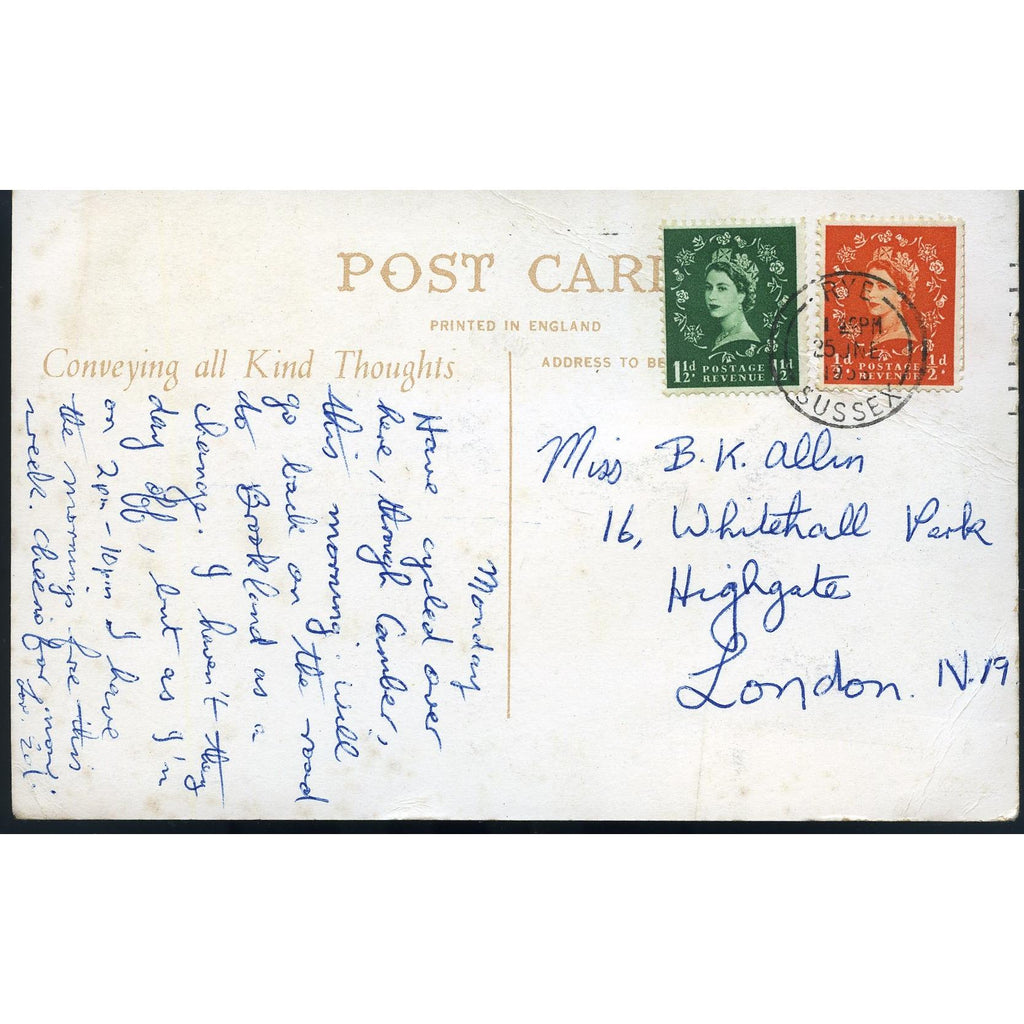 POST CAR
PRINTED IN ENGLAND
Conveying all Kind Thoughts
ADDRESS TO BE
1½d POSTAGE REVENUE 1½d
½d POSTAGE REVENUE ½d
RYE
PM
25 JNE
195
SUSSEX
Monday
Have cycled over
here, through Camber,
this morning will
go back on the road
to Brookland as a
change. I haven't the
day off, but as I'm
on 2pm - 10pm I have
the mornings free this
week. Cheerio for now
Miss B. K. Allin
16, Whitehall Park
Highgate
London. N.19